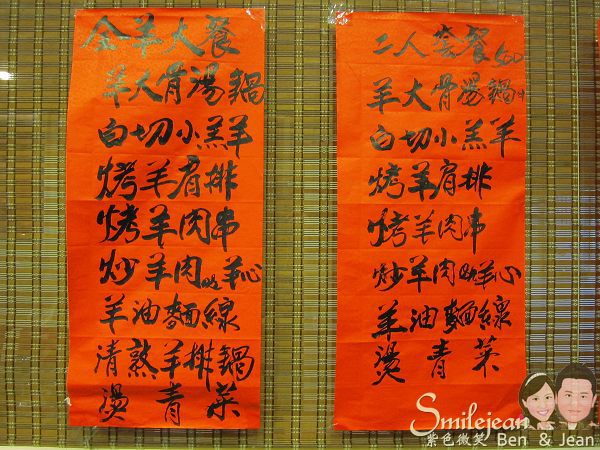 全羊大餐
羊大骨湯鍋
白切小羔羊
烤羊肩排
烤羊肉串
炒羊肉or羊心
羊油麵線
清熟羊排鍋
燙青菜
二人套餐
羊大骨湯鍋
白切小羔羊
烤羊肩排
烤羊肉串
炒羊肉or羊心
羊油麵線
燙青菜
Smilejean
紫色微笑 Ben & Jean